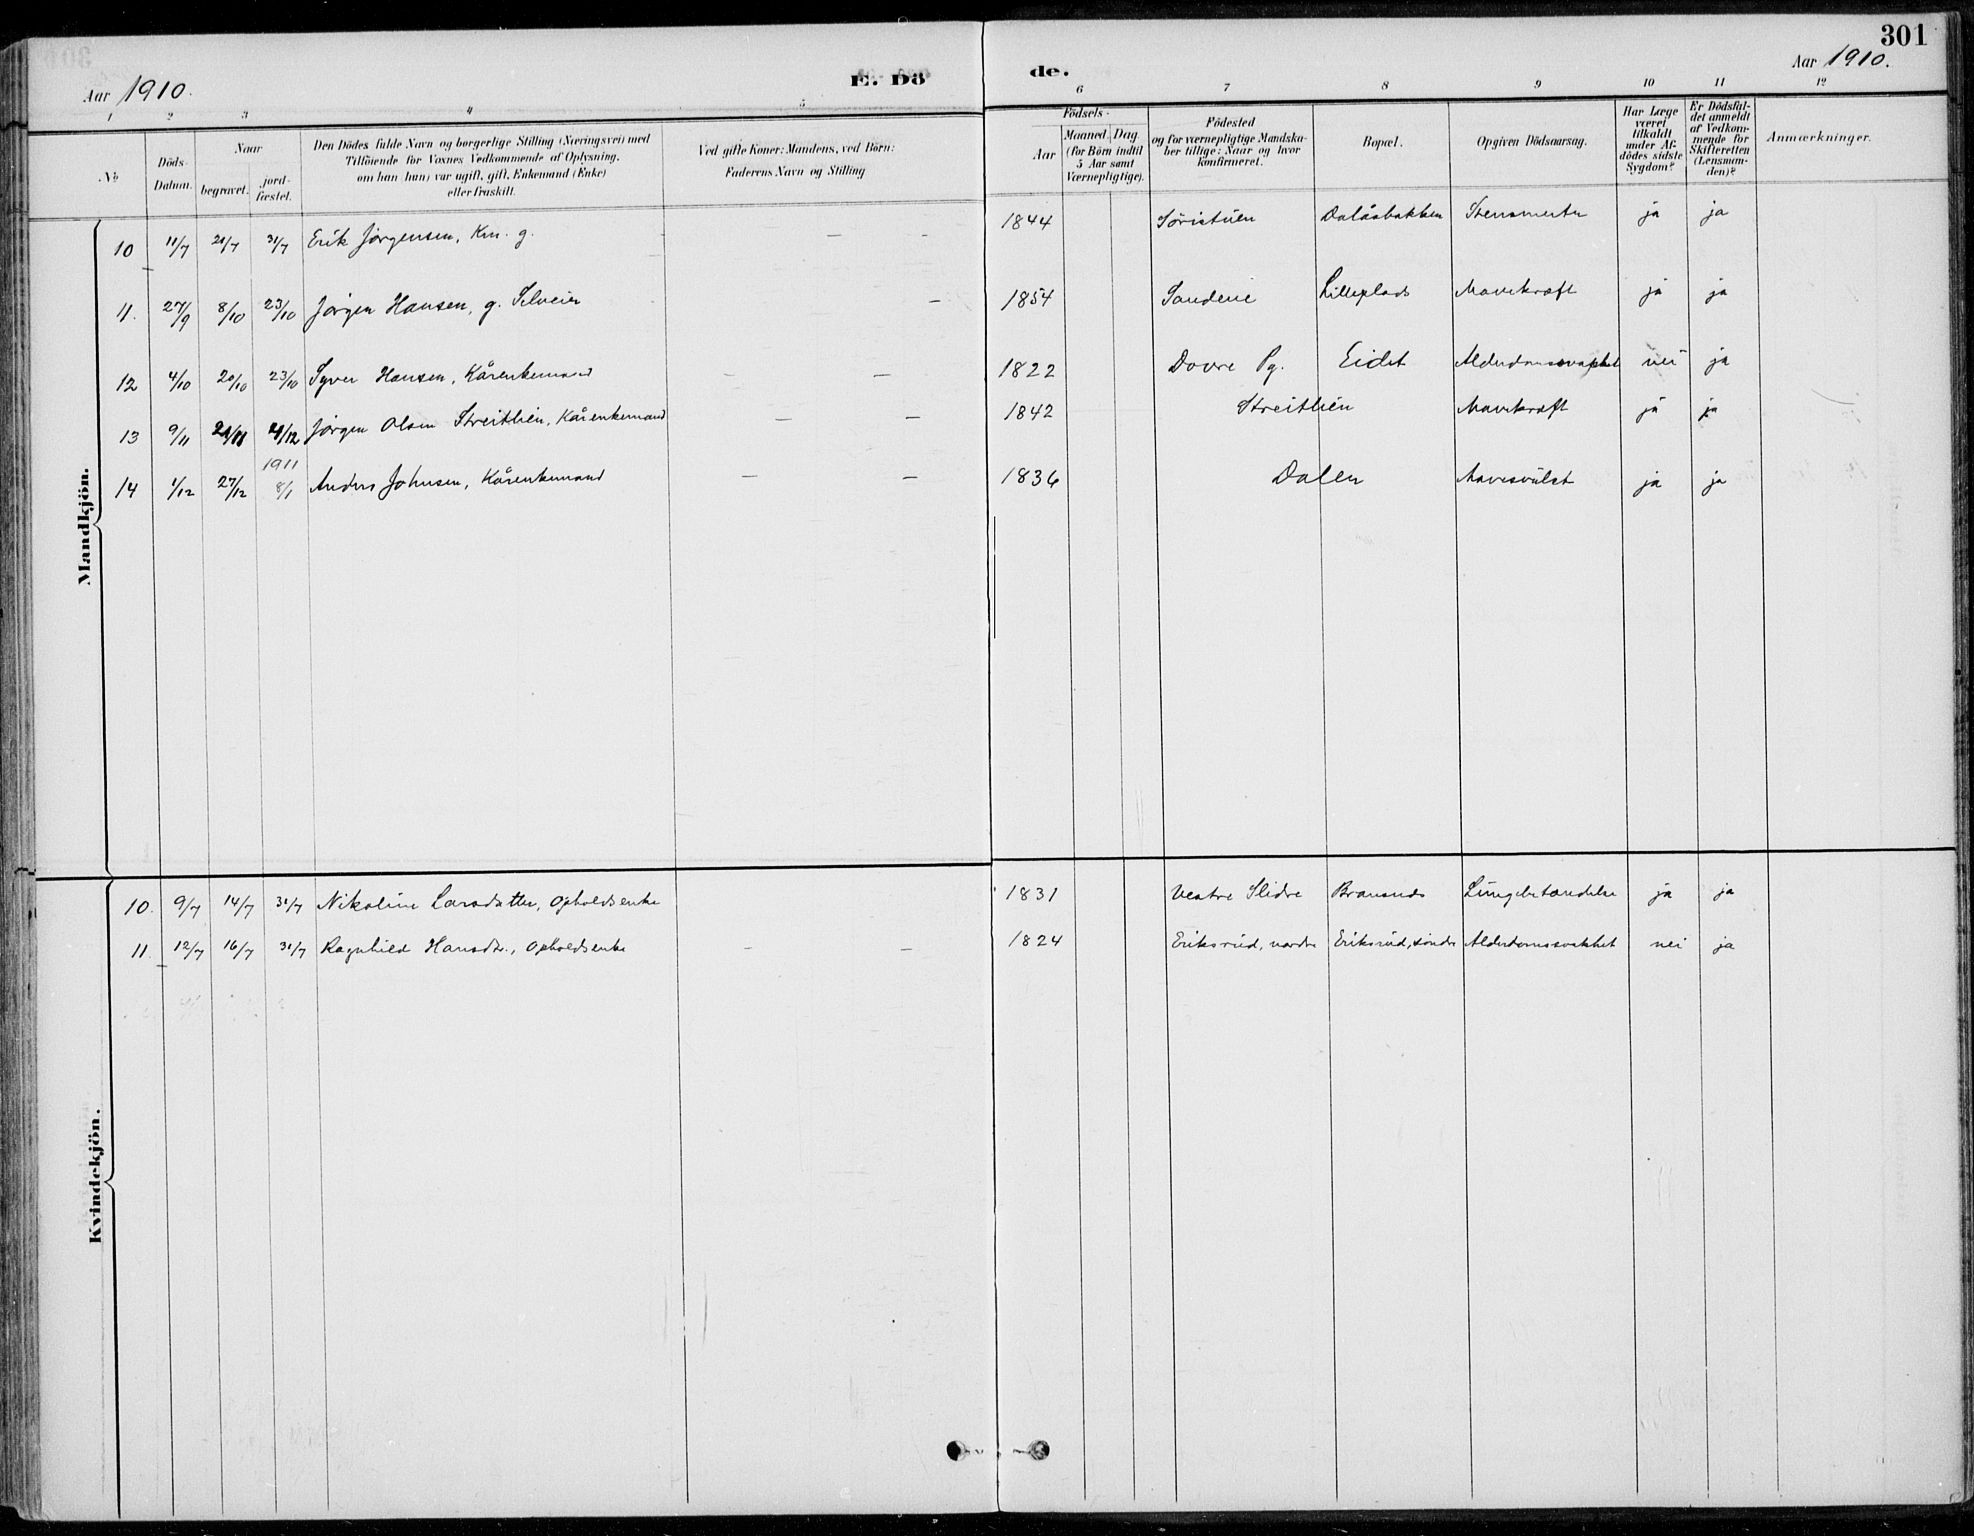 301
Aar 1910.
E. Dö
de.
Aar 1910.
1 2 3 4 5 6 7 8 9 10 11 12
No
Döds-
Datum.
Naar
begravet.
jord-
fæstet.
Den Dödes fulde Navn og borgerlige Stilling (Næringsvei) med
Tilföiende for Voxnes Vedkommende af Oplysning,
om han (hun) var ugift, gift, Enkemand (Enke)
eller fraskilt.
Ved gifte Koner: Mandens, ved Börn:
Faderens Navn og Stilling
Födsels-
Aar
Maaned. Dag.
(for Börn indtil
5 Aar samt
Værnepligtige).
Födested
og for værnepligtige Mandska-
ber tillige: Naar og hvor
konfirmeret.
Bopæl.
Opgiven Dödsaarsag.
Har Læge
været
tilkaldt
under Af-
dödes sidste
Sygdom?
Er Dödsfal-
det anmeldt
af Vedkom-
mende for
Skifteretten
(Lensman-
den)?
Anmærkninger.
Mandkjön.
10 11/7 21/7 31/7 Erik Jörgensen, Km. g. - - - 1844 Söristuen Dalåsbakken Stensmerter ja ja
11. 27/9 8/10 23/10 Jörgen Hansen, g. Selveier - 1854 Sandene Lilleplads Mavekræft ja ja
12 4/10 20/10 23/10 Syver Hansen, Kårenkemand - - 1822 Dovre Pg. Eidet Alderdomssvakhet nei ja
13 9/11 21/11 4/12 Jörgen Olsen Streitlien, Kårenkemand - - 1842 Streitlien Mavekræft ja ja
1911
14 1/12 27/12 8/1 Anders Johnsen, Kårenkemand - - 1836 Dalen Mavesvulst ja ja
Kvindekjön.
10. 9/7 14/7 31/7 Nikoline Larsdatter, Opholdsenke 1831 Vestre Slidre Lungebetændelse ja ja
11. 12/7 16/7 31/7 Ragnhild Hansdtr., Opholdsenke - - 1824 Eriksrud, nordre Eriksrud, söndr Alderdomssvakhet nei ja